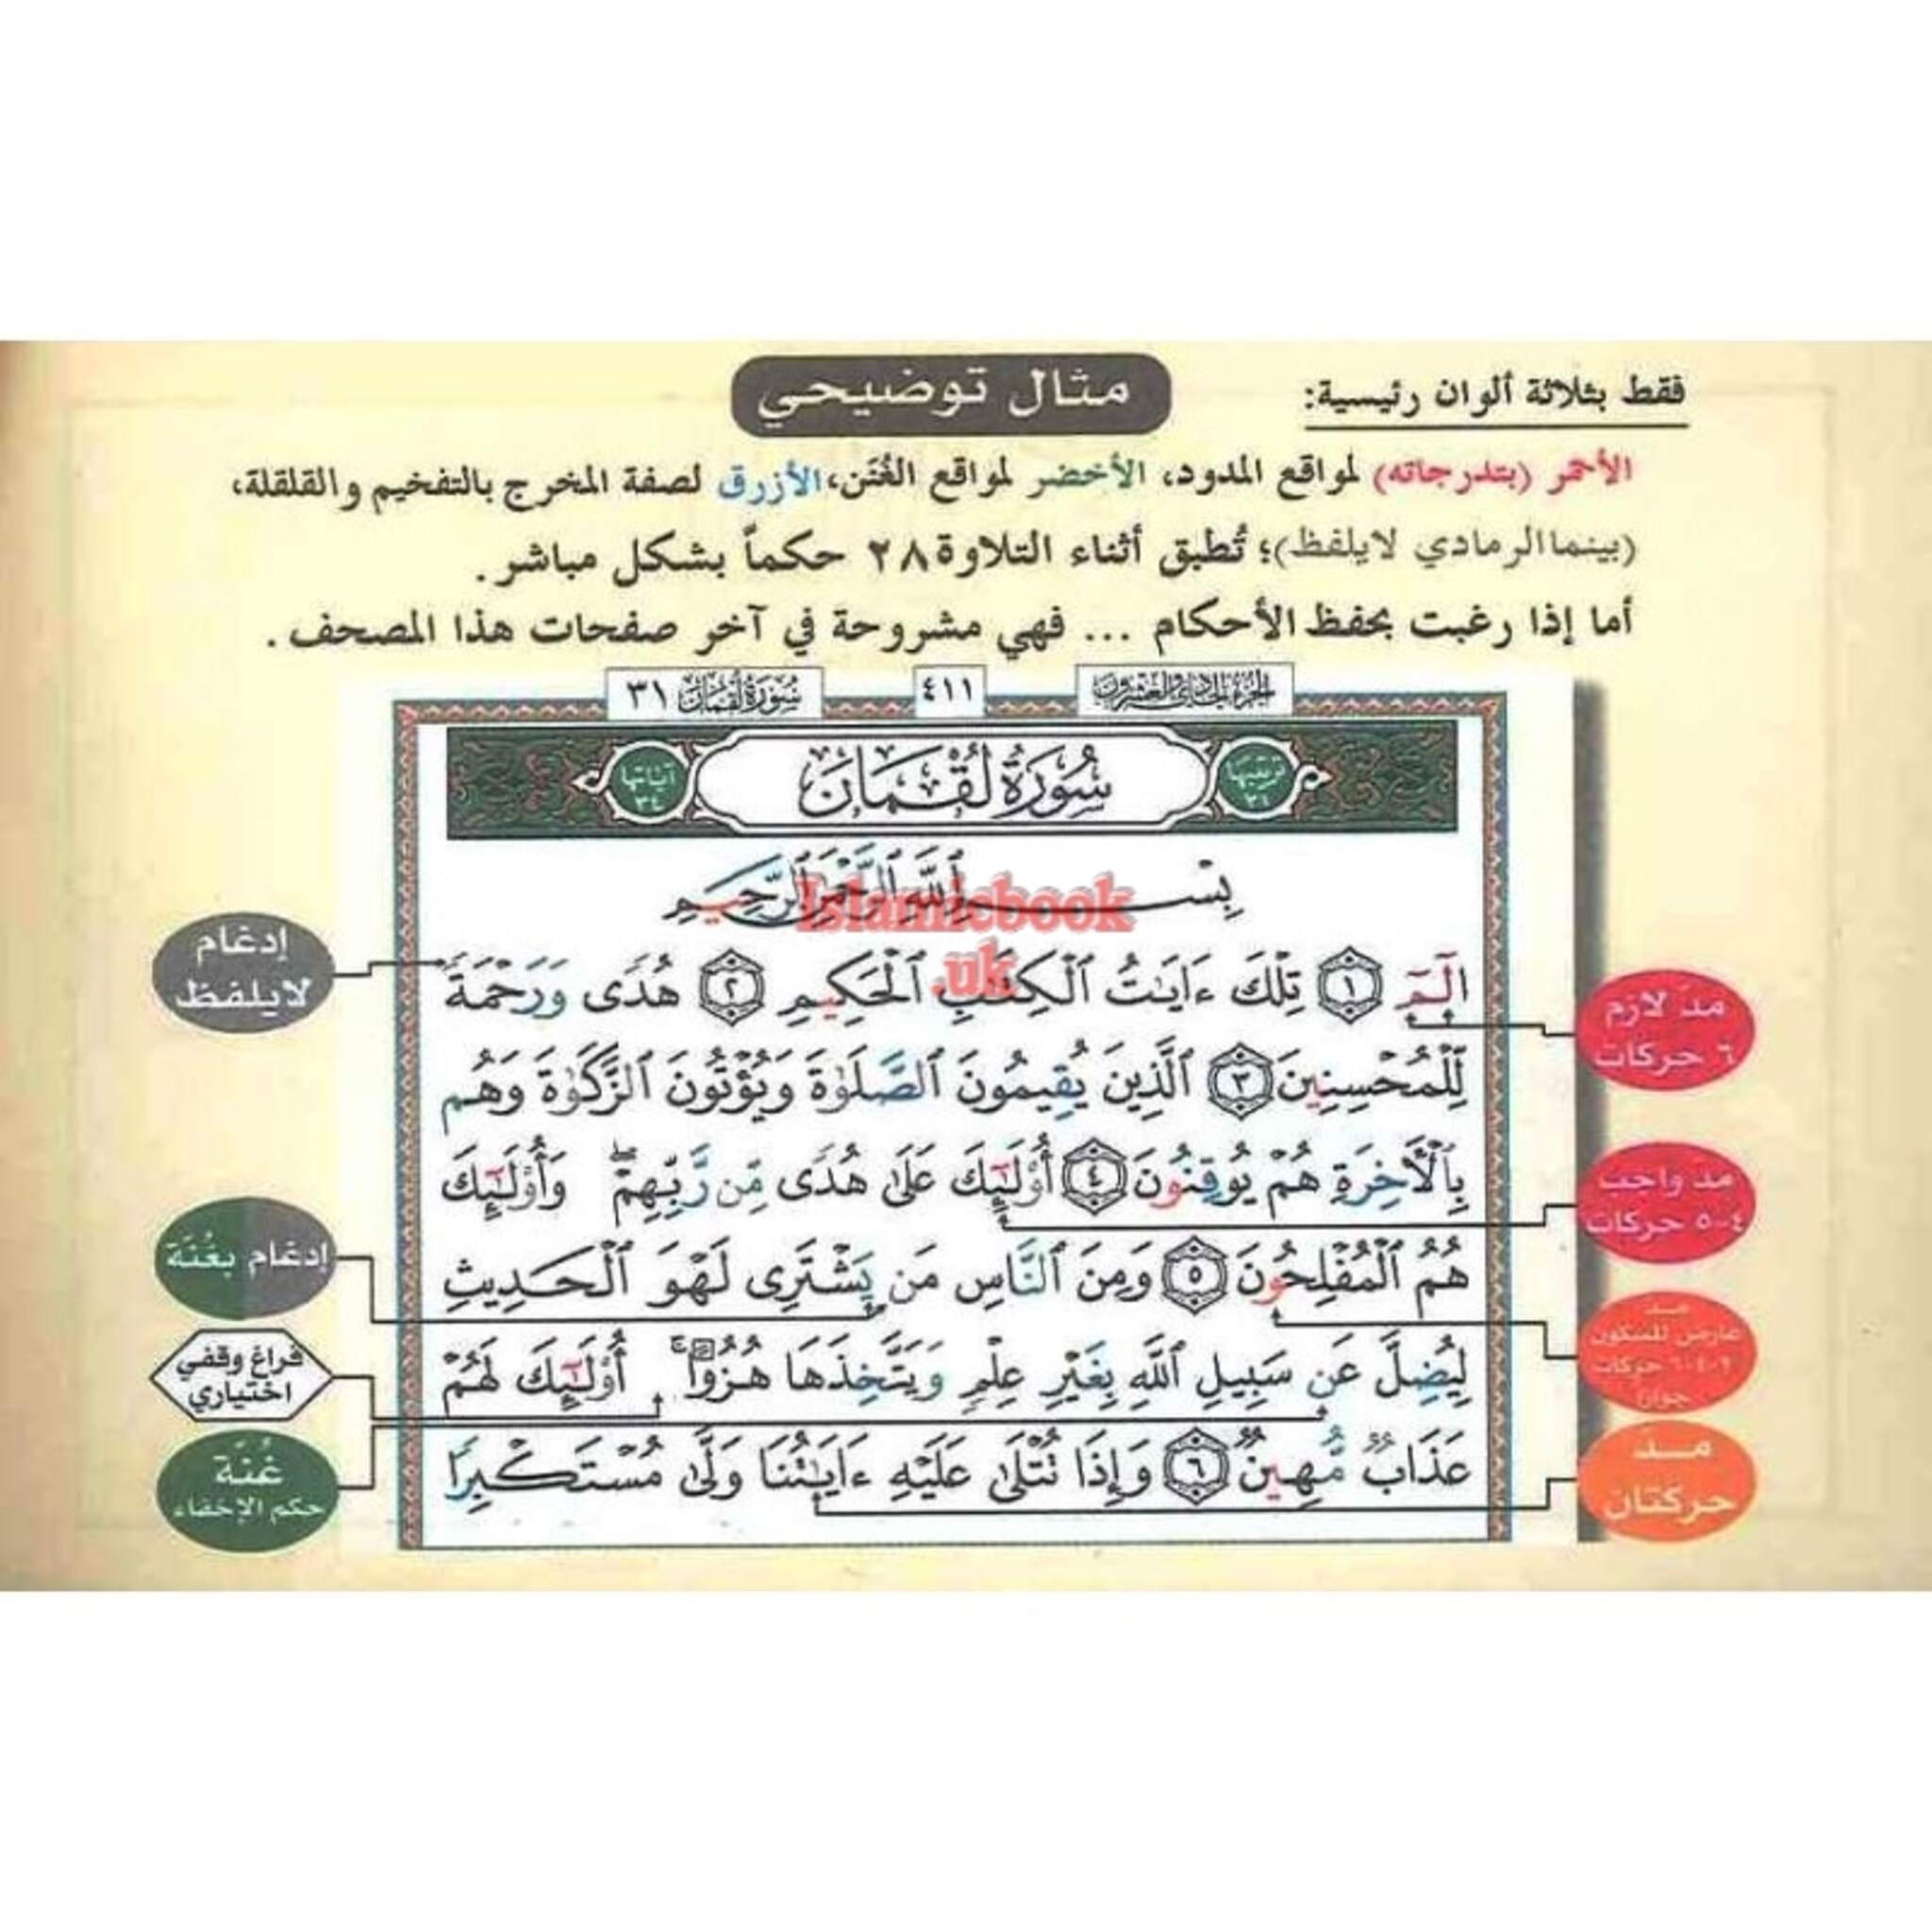 فقط بثلاثة ألوان رئيسية:
مثال توضيحي
الأحمر (بتدرجاته) لمواقع المدود، الأخضر لمواقع الغُنَن، الأزرق لصفة المخرج بالتفخيم والقلقلة،
(بينما الرمادي لا يلفظ)؛ تُطبق أثناء التلاوة ٢٨ حكماً بشكل مباشر.
أما إذا رغبت بحفظ الأحكام ... فهي مشروحة في آخر صفحات هذا المصحف.
الجزء الحادي والعشرون
٤١١
سُورَةُ لُقْمَان ٣١
ترتيبها ٣١
سُورَةُ لُقْمَان
آياتها ٣٤
بِسْمِ ٱللَّهِ ٱلرَّحْمَٰنِ ٱلرَّحِيمِ
الٓمٓ ١ تِلْكَ ءَايَٰتُ ٱلْكِتَٰبِ ٱلْحَكِيمِ ٢ هُدًى وَرَحْمَةً
لِّلْمُحْسِنِينَ ٣ ٱلَّذِينَ يُقِيمُونَ ٱلصَّلَوٰةَ وَيُؤْتُونَ ٱلزَّكَوٰةَ وَهُم
بِٱلْأَخِرَةِ هُمْ يُوقِنُونَ ٤ أُو۟لَٰٓئِكَ عَلَىٰ هُدًى مِّن رَّبِّهِمْ ۖ وَأُو۟لَٰٓئِكَ
هُمُ ٱلْمُفْلِحُونَ ٥ وَمِنَ ٱلنَّاسِ مَن يَشْتَرِى لَهْوَ ٱلْحَدِيثِ
لِيُضِلَّ عَن سَبِيلِ ٱللَّهِ بِغَيْرِ عِلْمٍ وَيَتَّخِذَهَا هُزُوًا ۚ أُو۟لَٰٓئِكَ لَهُمْ
عَذَابٌ مُّهِينٌ ٦ وَإِذَا تُتْلَىٰ عَلَيْهِ ءَايَٰتُنَا وَلَّىٰ مُسْتَكْبِرًا
مدّ لازم
٦ حركات
مدّ واجب
٤-٥ حركات
مدّ
عارض للسكون
٢-٤-٦ حركات
جوازاً
مدّ
حركتان
إدغام
لا يلفظ
إدغام بغُنَّة
فراغ وقفي
اختياري
غُنَّة
حكم الإخفاء
Islamicbook
.uk